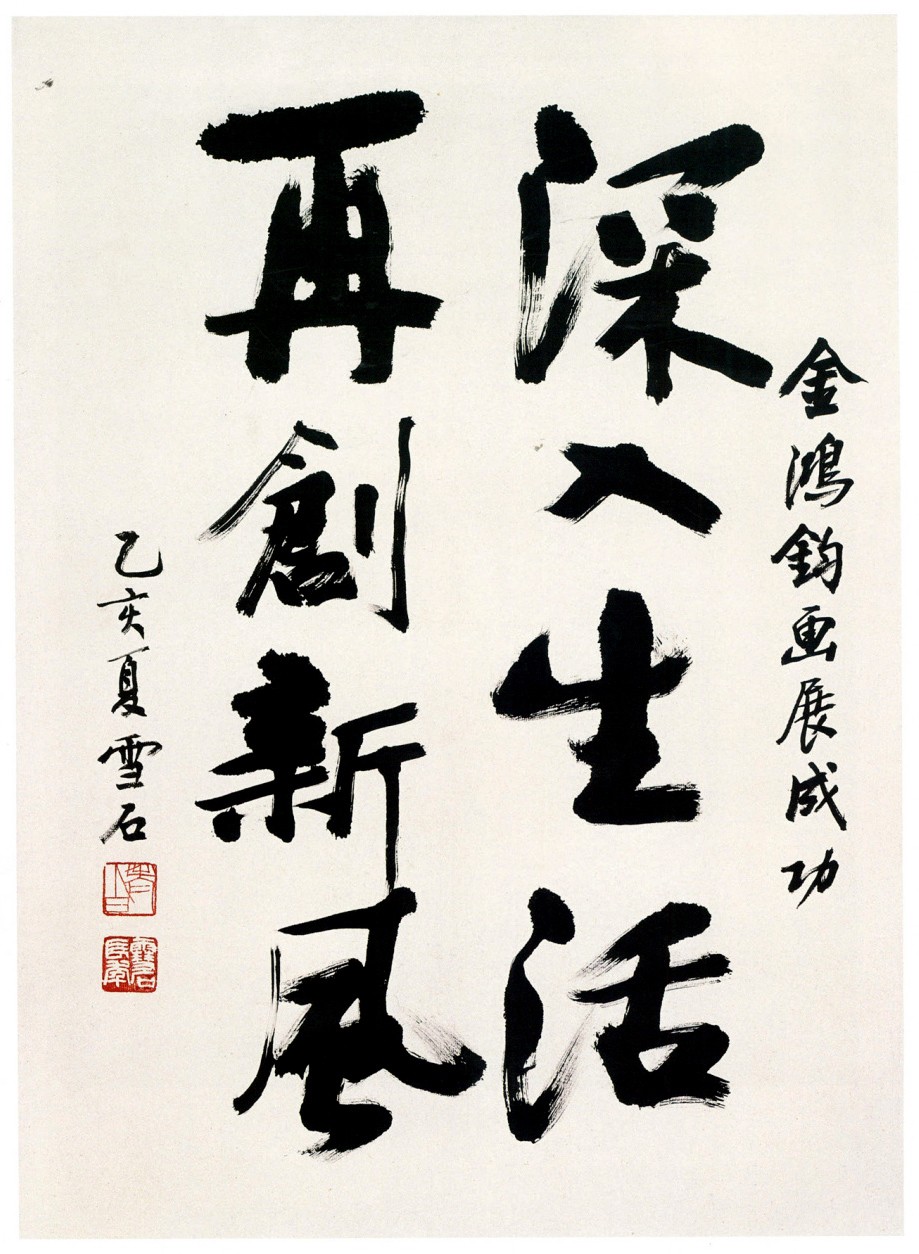 金鴻鈞画展成功
深入生活
再創新風
乙亥夏雪石